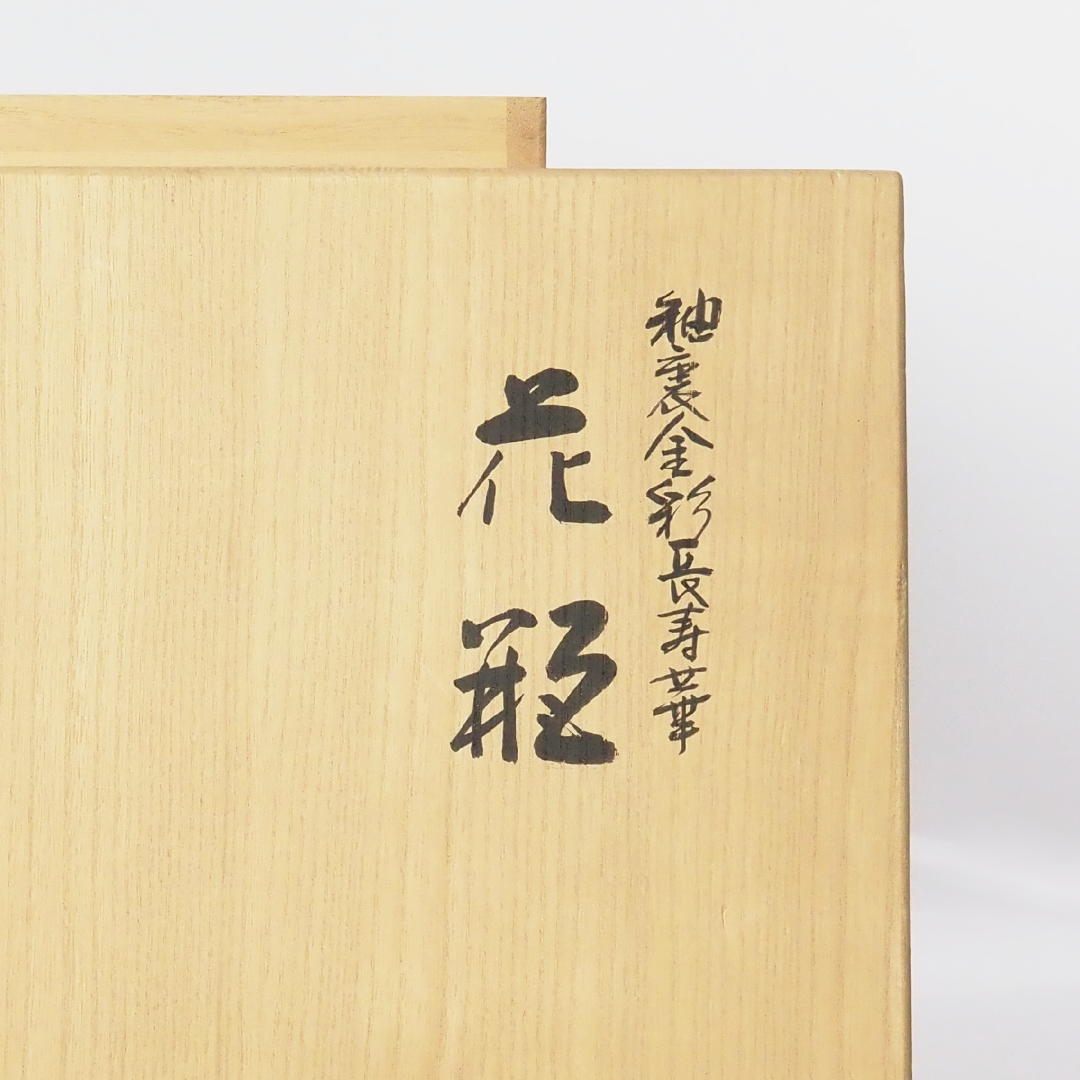 釉裏金彩長寿華
花瓶